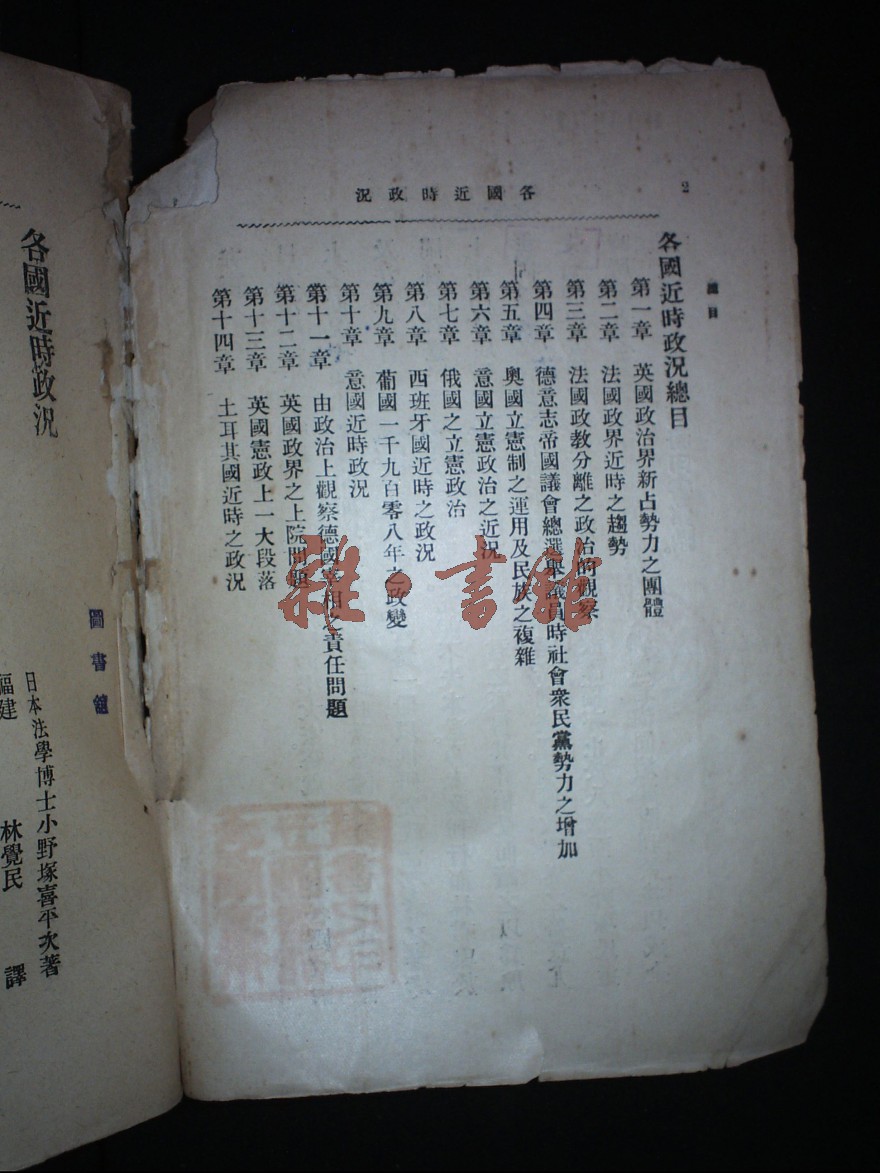 各國近時政況
2
總目
各國近時政況總目
第一章　英國政治界新占勢力之團體
第二章　法國政界近時之趨勢
第三章　法國政教分離之政治的觀察
第四章　德意志帝國議會總選舉議員時社會衆民黨勢力之增加
第五章　奧國立憲制之運用及民族之複雜
第六章　意國立憲政治之近況
第七章　俄國之立憲政治
第八章　西班牙國近時之政況
第九章　葡國一千九百零八年之政變
第十章　意國近時政況
第十一章　由政治上觀察德國宰相之責任問題
第十二章　英國政界之上院問題
第十三章　英國憲政上一大段落
第十四章　土耳其國近時之政況
雜·書館
圖書館
日本法學博士小野塚喜平次著
福建　林覺民　譯
各國近時政況